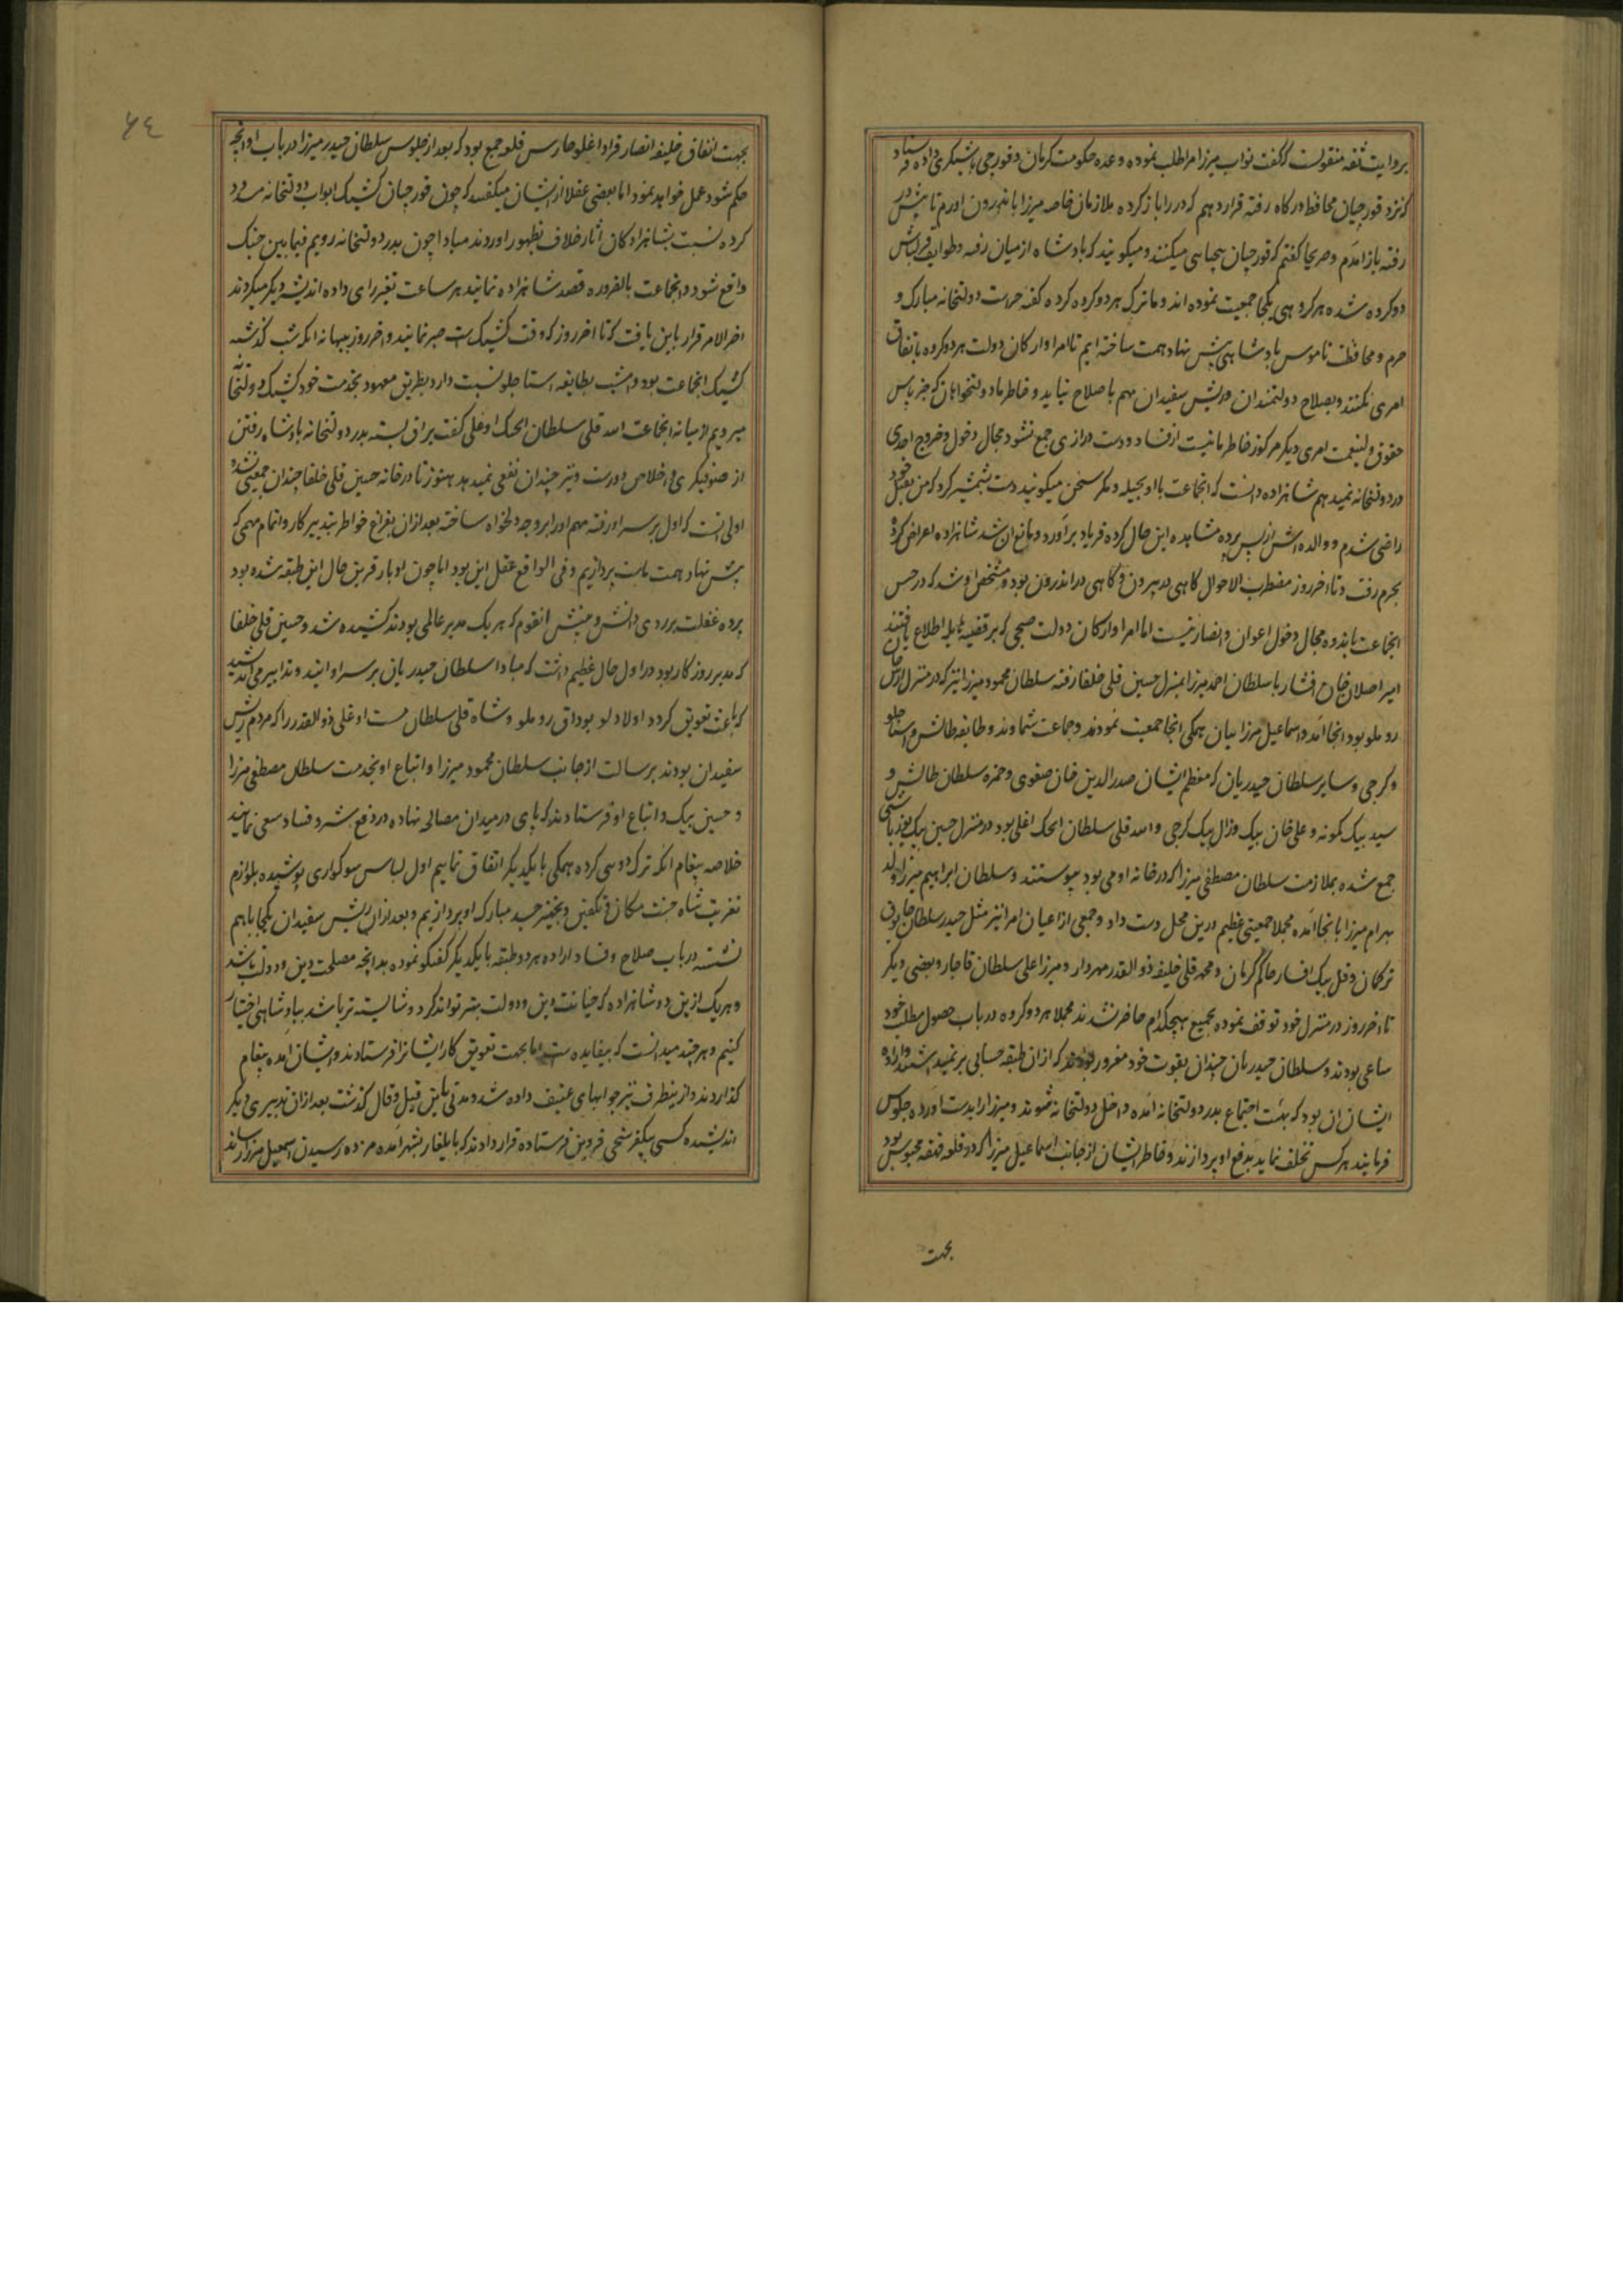 بروایت ثقه منقولست که گفت نواب میرزا مرا طلب نموده وعده حکومت کرمان و قورچی باشیگری داده فرستاد
که نزد قورچیان محافظ درگاه رفته قرار دهم که در را باز کرده ملازمان خاصه میرزا باندرون اورم تا پیش در
رفته باز آمدم و صریحا گفتم که قورچیان بیحیایی میکنند و میگویند که پادشاه از میان رفته و طوایف قزلباش
دو کروه شده هر کروهی یکجا جمعیت نموده اند و ما ترک هر دو کروه کرده کفه حراست دولتخانه مبارک و
حرم و محافظت ناموس پادشاهی پیش نهاد همت ساخته ایم تا امرا و ارکان دولت هر دو کروه باتفاق
امری نکنند و بصلاح دولتمندان و ریش سفیدان مهم باصلاح نیاید و خاطر ما دولتخواهان که جز پاس
حقوق ولینعمت امری دیکر مرکوز خاطر ما نیست از فساد و دست درازی جمع نشود مجال دخول و خروج احدی
در دولتخانه نمیدهیم شاهزاده دانست که انجماعت با او بحیله و مکر سخن میگویند دست بشمشیر کرد که من بقتل خود
راضی شدم و والده اش از پس پرده مشاهده این حال کرده فریاد براورد و مانع ان شد شاهزاده اعراض کرده
بحرم رفت و تا اخر روز مضطرب الاحوال کاهی در بیرون و کاهی در اندرون بود و مشخص او شد که در حبس
انجماعت مانده و مجال دخول اعوان و انصار نیست اما امرا و ارکان دولت صبحی که بر قضیه هایله اطلاع یافتند
امیر اصلان خان افشار با سلطان احمد میرزا بمنزل حسین قلی خلفا رفته سلطان محمود میرزا نیز که در منزل ارس خان
روملو بود انجا آمد و اسماعیل میرزاییان همکی انجا جمعیت نمودند و جماعت شاملو و طایفه طالش و استاجلو
و کرجی و سایر سلطان حیدریان که معظم ایشان صدرالدین خان صفوی و حمزه سلطان طالش و
سید بیک کمونه و علی خان بیک و زال بیک کرجی و الله قلی سلطان ایجک اغلی بود در منزل حسین بیک یوزباشی
جمع شده بملازمت سلطان مصطفی میرزا که در خانه او می بود پیوستند و سلطان ابراهیم میرزا ولد
بهرام میرزا بانجا آمده مجملا جمعیتی عظیم درین محل دست داد و جمعی از اعیان امرا نیز مثل حیدر سلطان چابوق
ترکمان و قلی بیک افشار حاکم کرمان و محمد قلی خلیفه ذوالقدر مهردار و میرزا علی سلطان قاجار و بعضی دیکر
تا اخر روز در منزل خود توقف نموده بجمع هیچکدام حاضر نشدند مجملا هر دو کروه در باب حصول مطلب خود
ساعی بودند و سلطان حیدریان چندان بقوت خود مغرور بودند که از ان طبقه حسابی بر نمیداشتند و اراده
ایشان ان بود که بهیئت اجتماع بدر دولتخانه آمده داخل دولتخانه شوند و میرزا را بدست اورده جلوس
فرمایند هر کس تخلف نماید بدفع او پردازند و خاطر ایشان از جانب اسماعیل میرزا که در قلعه قهقهه محبوس بود
بجهت
۶٤
بجهت اتفاق خلیفه انصار قراداغلو حارس قلعه جمع بود که بعد از جلوس سلطان حیدر میرزا در باب او انچه
حکم شود عمل خواهد نمود اما بعضی عقلا از ایشان میکفتند که چون قورچیان کشیک ابواب دولتخانه مسدود
کرده نسبت بشاهزادکان آثار خلاف بظهور اوردند مبادا چون بدر دولتخانه رویم فیمابین جنک
واقع شود و انجماعت بالضروره قصد شاهزاده نمایند هر ساعت تغیر رای داده اندیشه دیکر میکردند
اخر الامر قرار باین یافت که تا اخر روز که وقت کشیک است صبر نمایند و اخر روز ببهانه انکه شب کذشته
کشیک انجماعت بود و امشب بطایفه استاجلو نسبت دارد بطریق معهود بخدمت خود کشیک دولتخانه
میرویم از میانه انجماعت الله قلی سلطان ایجک اوغلی کفت یراق بسته بدر دولتخانه پادشاه رفتن
از صوفیکری و اخلاص دورست و نیز چندان نفعی نمیدهد هنوز تا در خانه حسین قلی خلفا چندان جمعیتی نشده
اولی انست که اول بر سر او رفته مهم او را بر وجه دلخواه ساخته بعد از ان بفراغ خواطر بتدبیر کار و اتمام مهمی که
پیش نهاد همت ماست پردازیم و فی الواقع عقل این بود اما چون ادبار قرین حال این طبقه شده بود
پرده غفلت بر روی دانش و بینش انقوم که هر یک مدبر عالمی بودند کشیده شد و حسین قلی خلفا
که مدبر روزکار بود در اول حال عظیم داشت که مبادا سلطان حیدریان بر سر او ایند و تدابیر می اندیشید
که باعث تعویق کردد اولاد لو بوداق روملو و شاه قلی سلطان مست اوغلی ذوالقدر را که مردم ریش
سفیدان بودند برسالت از جانب سلطان محمود میرزا و اتباع او بخدمت سلطان مصطفی میرزا
و حسین بیک و اتباع او فرستادند که پای در میدان مصالح نهاده در دفع شر و فساد سعی نمایند
خلاصه پیغام انکه ترک دویی کرده همکی با یکدیکر اتفاق نماییم اول لباس سوکواری پوشیده بلوازم
تعزیت شاه جنت مکان و تکفین و تجهیز جسد مبارک او پردازیم و بعد از ان ریش سفیدان یکجا باهم
نشسته در باب صلاح و فساد اراده هر دو طبقه با یکدیکر کفتکو نموده بدانچه مصلحت دین و دولت باشد
و هر یک از این دو شاهزاده که حمایت دین و دولت بهتر تواند کرد و شایسته تر باشد بپادشاهی اختیار
کنیم و هر چند میدانست که بیفایده است اما بجهت تعویق کار ایشانرا فرستادند و ایشان آمده پیغام
کذاردند و از ینطرف نیز جوابهای عنیف داده شد و مدتی باین قیل و قال کذشت بعد از ان تدبیری دیکر
اندیشیده کسی بیکفرسخی قزوین فرستاده قرار دادند که بایلغار بشهر آمده مژده رسیدن اسمعیل میرزا رساند